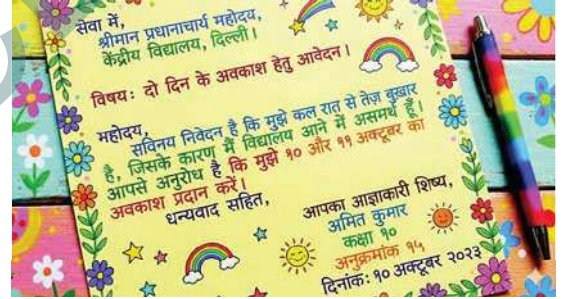 सेवा में,
श्रीमान प्रधानाचार्य महोदय,
केंद्रीय विद्यालय, दिल्ली।
विषय: दो दिन के अवकाश हेतु आवेदन।
महोदय,
सविनय निवेदन है कि मुझे कल रात से तेज़ बुखार
है, जिसके कारण मैं विद्यालय आने में असमर्थ हूँ।
आपसे अनुरोध है कि मुझे १० और ११ अक्टूबर का
अवकाश प्रदान करें।
धन्यवाद सहित,
आपका आज्ञाकारी शिष्य,
अमित कुमार
कक्षा १०
अनुक्रमांक १५
दिनांक: १० अक्टूबर २०२३